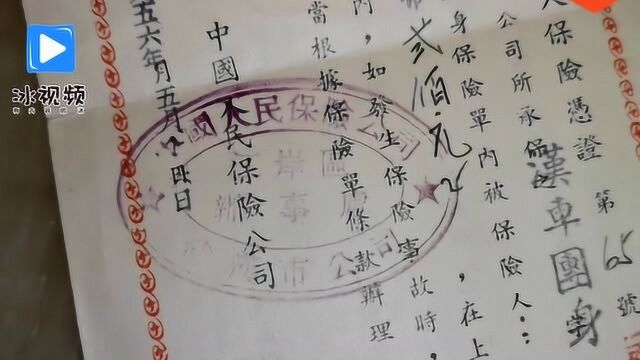 人保險憑證 第65號
公司所承保的 漢車團身
身保險單內被保險人：
貳佰元，在上
內，如發生保險事故時，
當根據保險單條款辦理
中國人民保險公司
五六年 月五日
國人民保險公司
岸區
辦事
市公司
冰视频